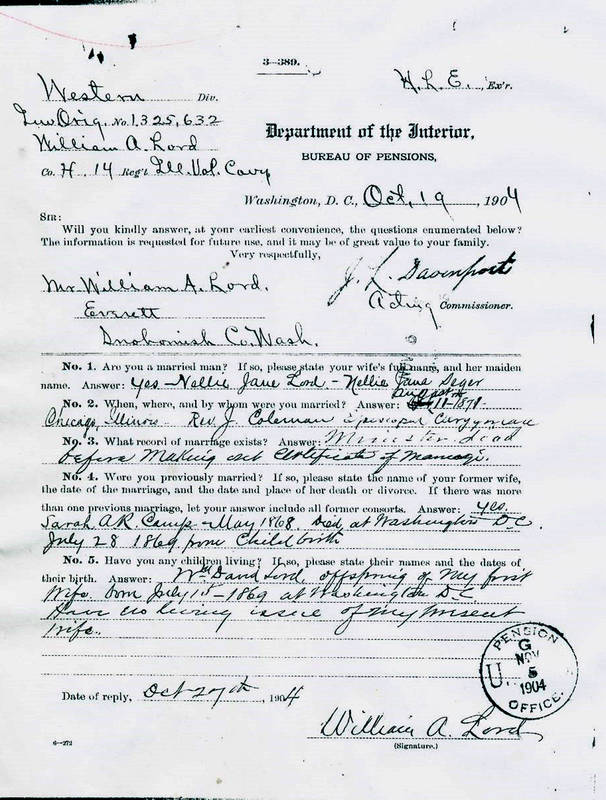 3—389.
Western Div.
H. L. E., Ex'r.
Inv Orig. No. 1,325,632
William A. Lord
Co. H, 14 Reg't Ill. Vol. Cavy
Department of the Interior,
BUREAU OF PENSIONS,
Washington, D. C., Oct, 19, 1904
SIR:
Will you kindly answer, at your earliest convenience, the questions enumerated below?
The information is requested for future use, and it may be of great value to your family.
Very respectfully,
J. L. Davenport
Acting Commissioner.
Mr. William A. Lord.
Everett
Snohomish Co. Wash.
No. 1. Are you a married man? If so, please state your wife's full name, and her maiden
name. Answer: Yes — Nellie Jane Lord — Nellie Jane Seger
No. 2. When, where, and by whom were you married? Answer: 11-1871
Chicago, Illinois Rev J. Coleman Episcopal Clergyman
No. 3. What record of marriage exists? Answer: Minister Dead
before Making out Certificate of Marriage.
No. 4. Were you previously married? If so, please state the name of your former wife,
the date of the marriage, and the date and place of her death or divorce. If there was more
than one previous marriage, let your answer include all former consorts. Answer: Yes.
Sarah A.R. Camp — May 1868. Died at Washington D.C.
July 28 1869 from Child birth
No. 5. Have you any children living? If so, please state their names and the dates of
their birth. Answer: Wm David Lord. offspring of My first
Wife. born July 1st - 1869 at Washington D.C.
Have no living issue of my present
wife.
PENSION
G
NOV
U. 5
1904
OFFICE.
Date of reply, Oct 27th, 1904
William A. Lord
(Signature.)
6—272